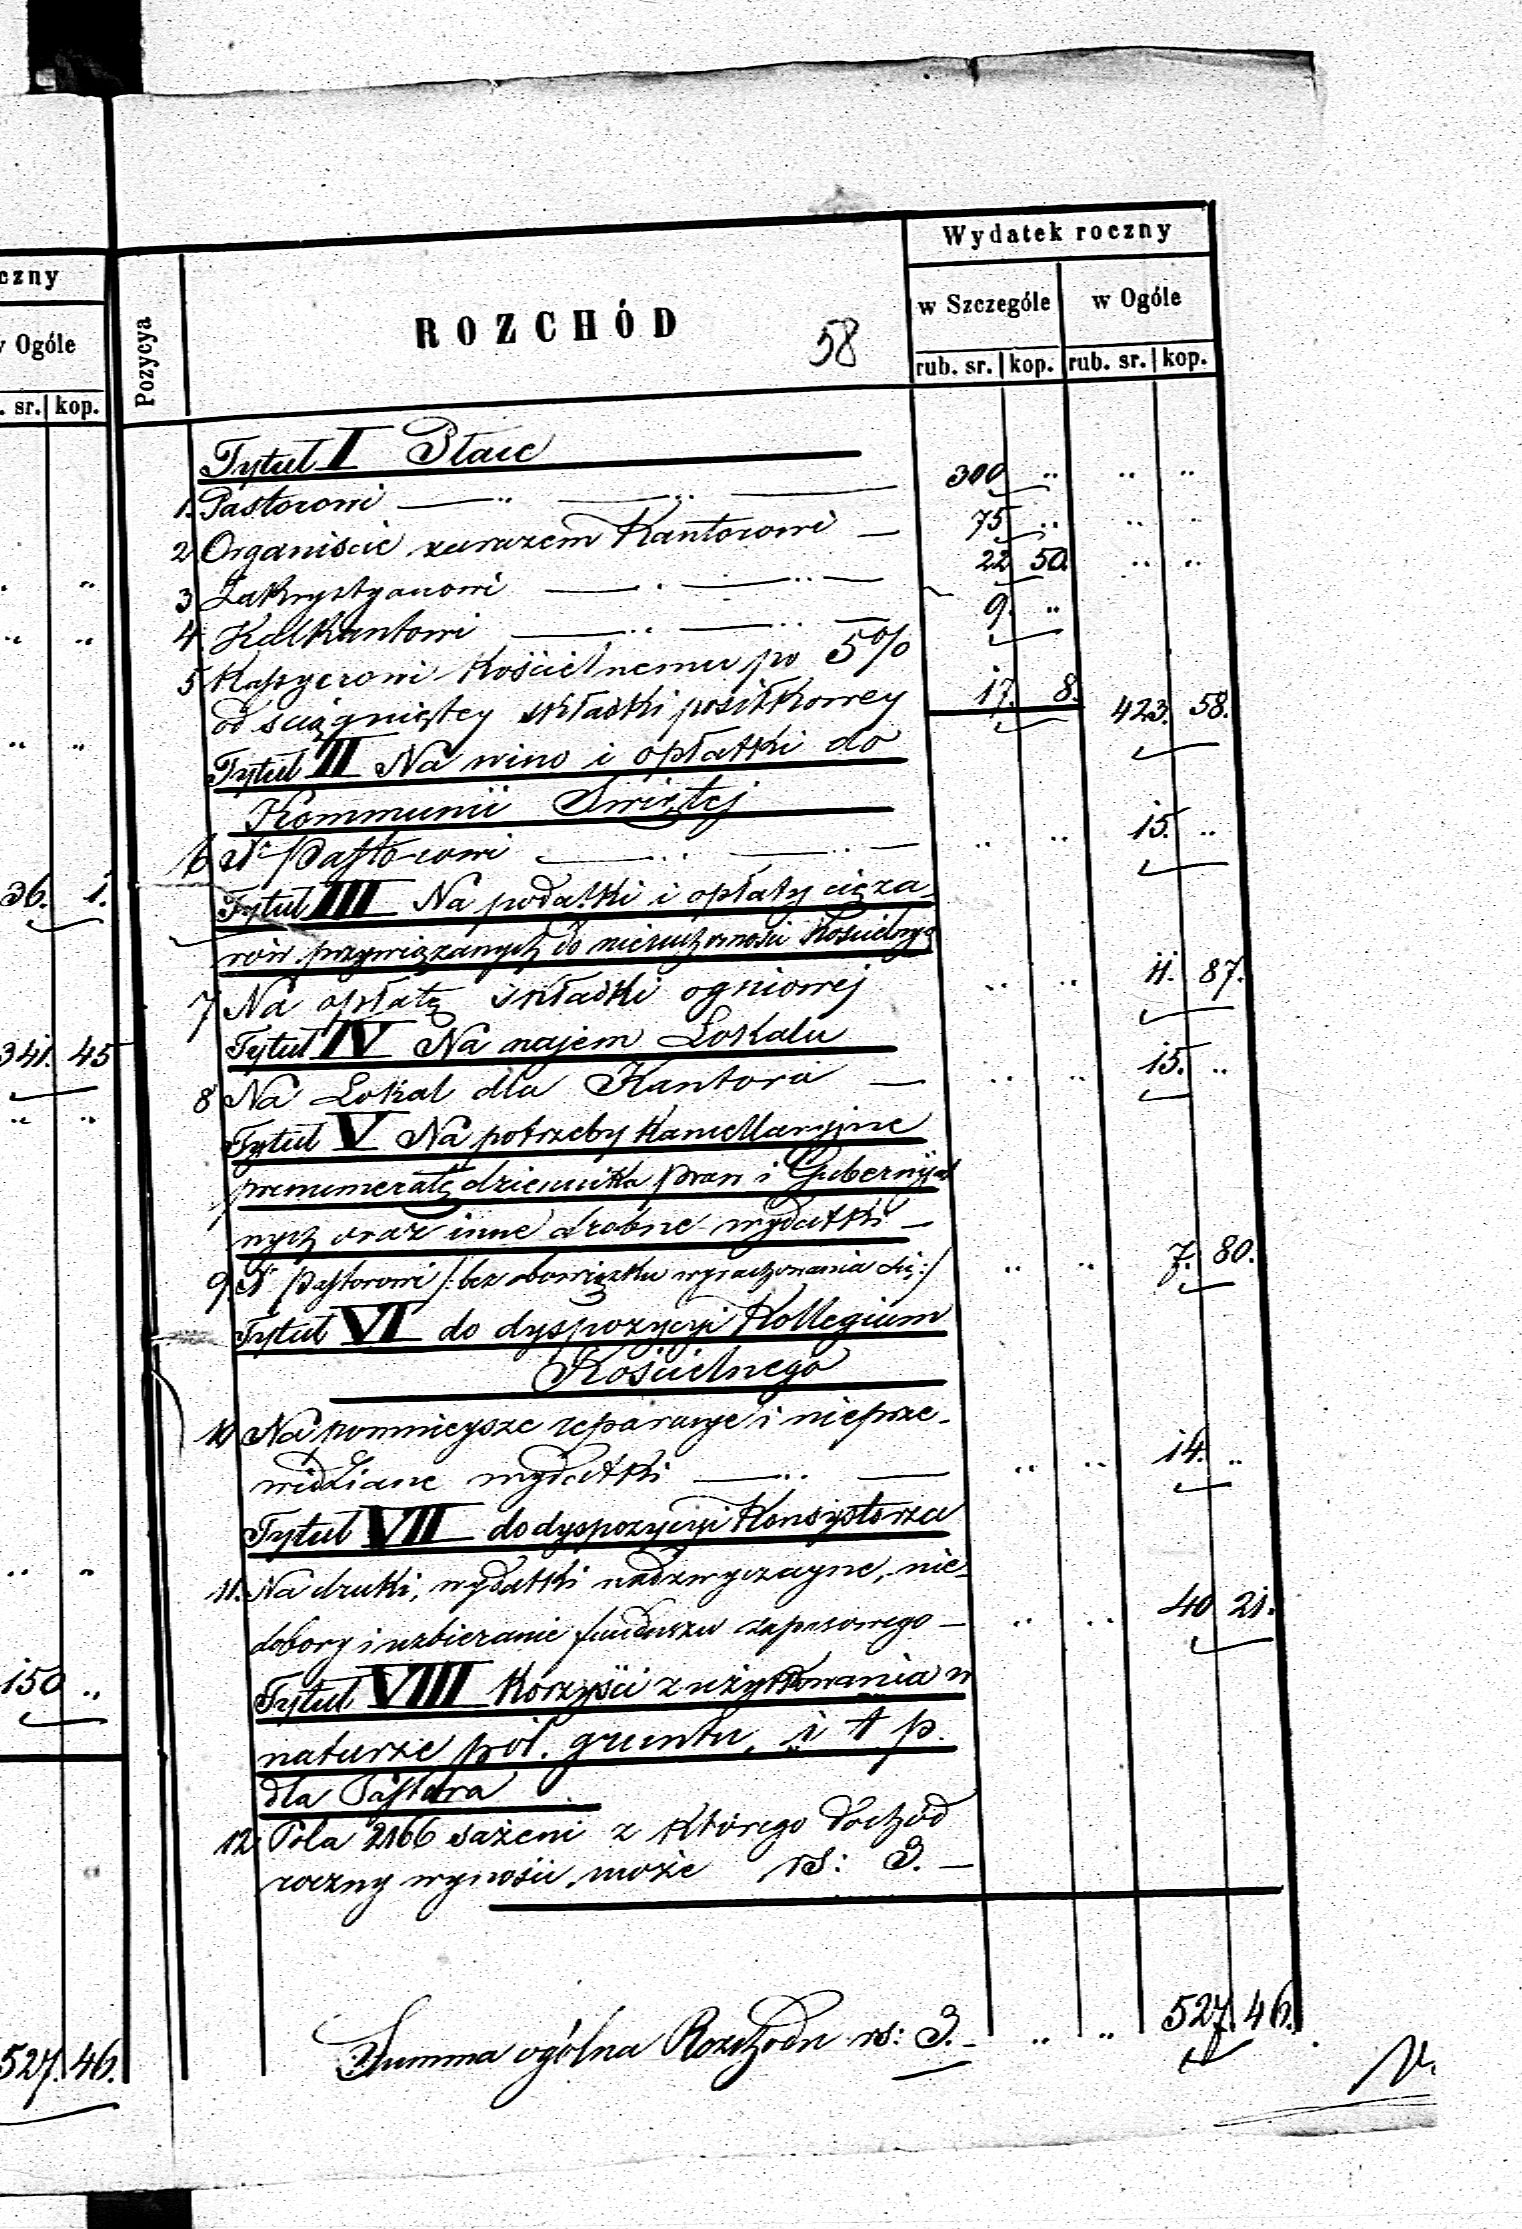 czny
w Ogóle
. sr. kop.
36. 1.
341. 45
150 ..
527. 46.
Wydatek roczny
Pozycya
ROZCHÓD
58
w Szczególe w Ogóle
rub. sr. kop. rub. sr. kop.
Tytuł I Płace
1. Pastorowi 300 .. .. ..
2 Organiście zarazem Kantorowi 75 .. .. ..
3 Zakrystyanowi 22 50. .. ..
4. Kalkantowi 9. ..
5 Kassyerowi Kościelnemu po 5%
od ściągniętey składki posiłkowey 17. 8. 423. 58.
Tytuł II Na wino i opłatki do
Kommunii Swiętej
6 Pastorowi .. .. 15. ..
Tytuł III Na podatki i opłaty cięża-
rów przywiązanych do nieruchomości Kościelnych
7 Na opłatę składki ogniowej .. .. 11. 87.
Tytuł IV Na najem Lokalu
8 Na Lokal dla Kantora .. .. 15. ..
Tytuł V Na potrzeby Kancellaryjne
prenumeratę dziennika praw i Gubernijal
nych oraz inne drobne wydatki
9. Pastorowi /: bez obowiązku wyrachowania się :/ .. .. 7. 80.
Tytuł VI do dyspozycyi Kollegium
Kościelnego
10 Na pomnieysze reparacye i nieprze-
widziane wydatki .. .. 14. ..
Tytuł VII do dyspozycyi Konsystorza
11. Na druki, wydatki nadzwyczayne, nie-
dobory i uzbieranie funduszu zapasowego .. .. 40 21.
Tytuł VIII Korzyści z użytkowania w
naturze pól, gruntu, i t. p.
dla Pastora
12. Pola 2166 sażeni z którego dochód
roczny wynosić może rs: 3. —
Summa ogólna Rozchodu rs: 3. — .. .. 527. 46.